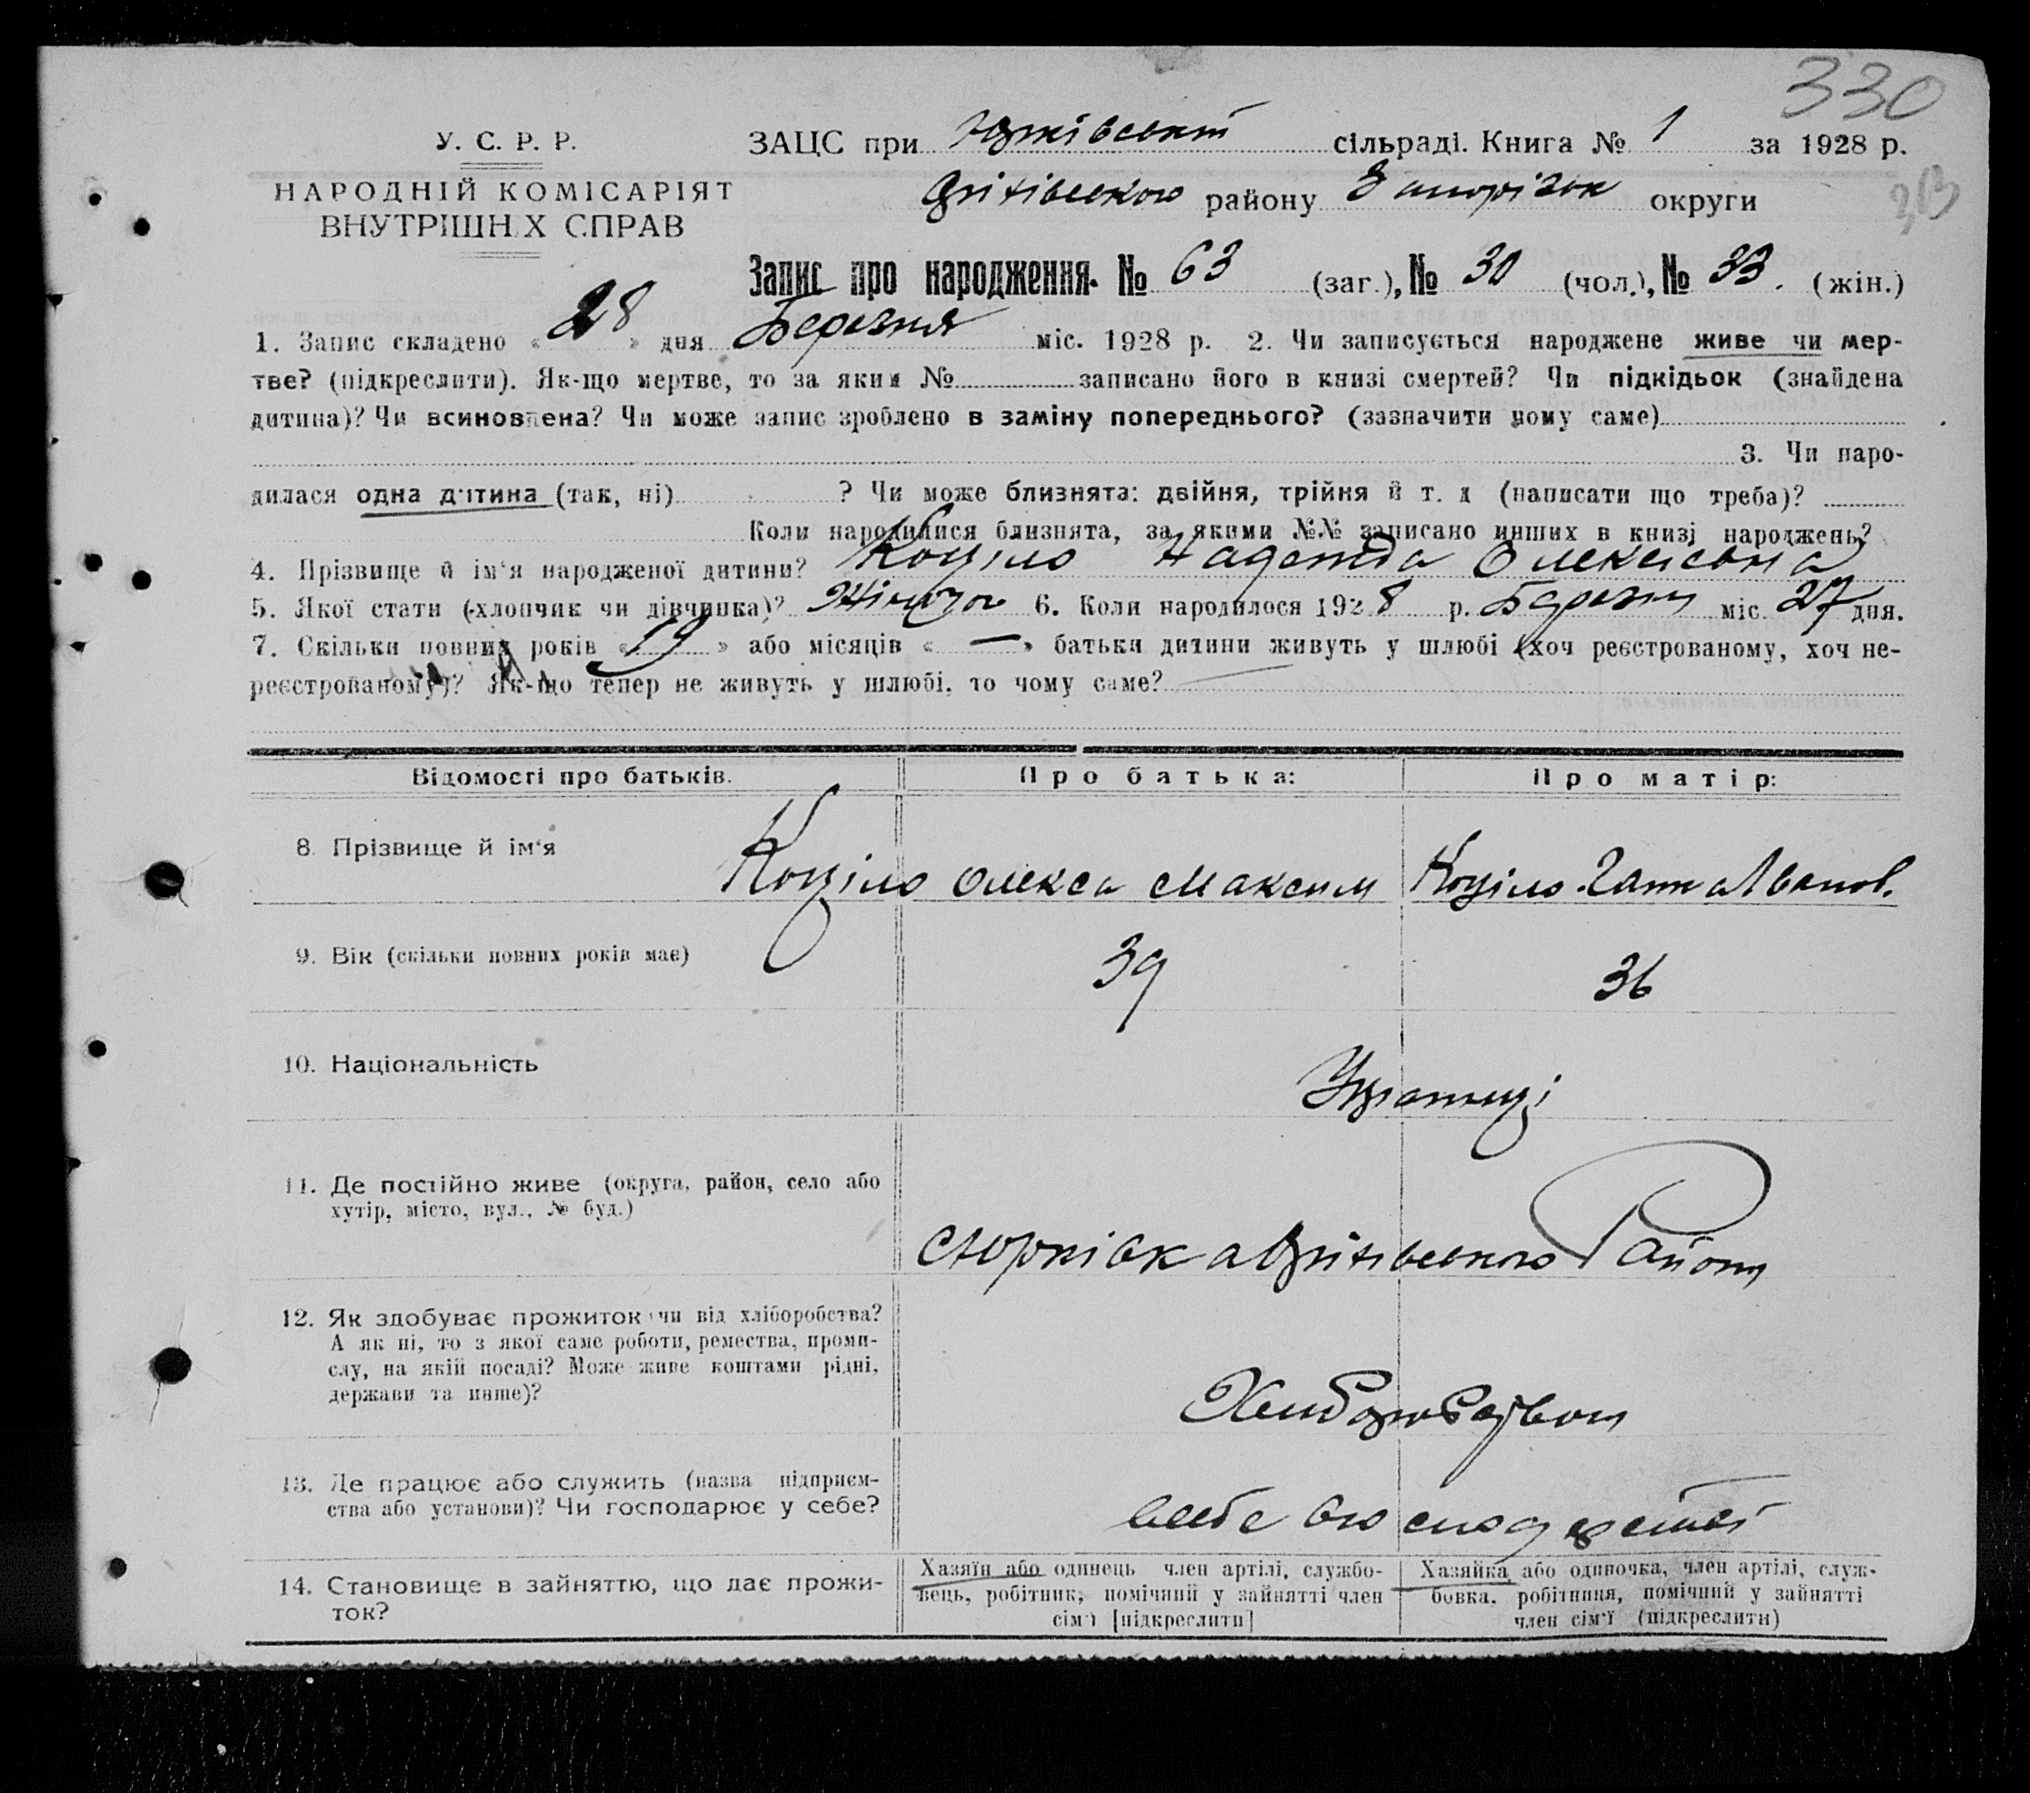 330
У. С. Р. Р.
ЗАЦС при Юрківській сільраді. Книга № 1 за 1928 р.
НАРОДНІЙ КОМІСАРІЯТ
ВНУТРІШНІХ СПРАВ
Оріхівського району Запорізьк округи
Запис про народження. № 63 (заг.), № 30 (чол.), № 33. (жін.)
1. Запис складено « 28 » дня Березня міс. 1928 р. 2. Чи записується народжене живе чи мер-
тве? (підкреслити). Як-що мертве, то за яким № записано його в книзі смертей? Чи підкідьок (знайдена
дитина)? Чи всиновлена? Чи може запис зроблено в заміну попереднього? (зазначити чому саме)
3. Чи наро-
дилася одна дитина (так, ні) ? Чи може близнята: двійня, трійня й т. д (написати що треба)?
Коли народилися близнята, за якими №№ записано инших в книзі народжень?
4. Прізвище й ім'я народженої дитини? Коціло Надежда Олексієвна
5. Якої стати (хлопчик чи дівчинка)? 6. Коли народилося 1928 р. Березня міс. 27 дня.
7. Скільки повних років « 19 » або місяців « — » батьки дитини живуть у шлюбі (хоч реєстрованому, хоч не-
реєстрованому)? Як-що тепер не живуть у шлюбі, то чому саме?
Відомості про батьків. Про батька: Про матір:
8. Прізвище й ім'я Коціло Олекса Максим Коціло Ганна Іванов.
9. Вік (скільки повних років має) 39 36
10. Національність Українці
11. Де постійно живе (округа, район, село або
хутір, місто, вул., № буд.)
с Юрківка Оріхівського Району
12. Як здобуває прожиток чи від хліборобства?
А як ні, то з якої саме роботи, ремества, проми-
слу, на якій посаді? Може живе коштами рідні,
держави та инше)?
13. Де працює або служить (назва підприєм-
ства або установи)? Чи господарює у себе?
14. Становище в зайняттю, що дає прожи-
ток?
Хазяїн або одинець член артілі, службо-
вець, робітник, помічний у зайнятті член
сім'ї [підкреслити]
Хазяйка або одиночка, член артілі, служ-
бовка, робітниця, помічний у зайнятті
член сім'ї (підкреслити)